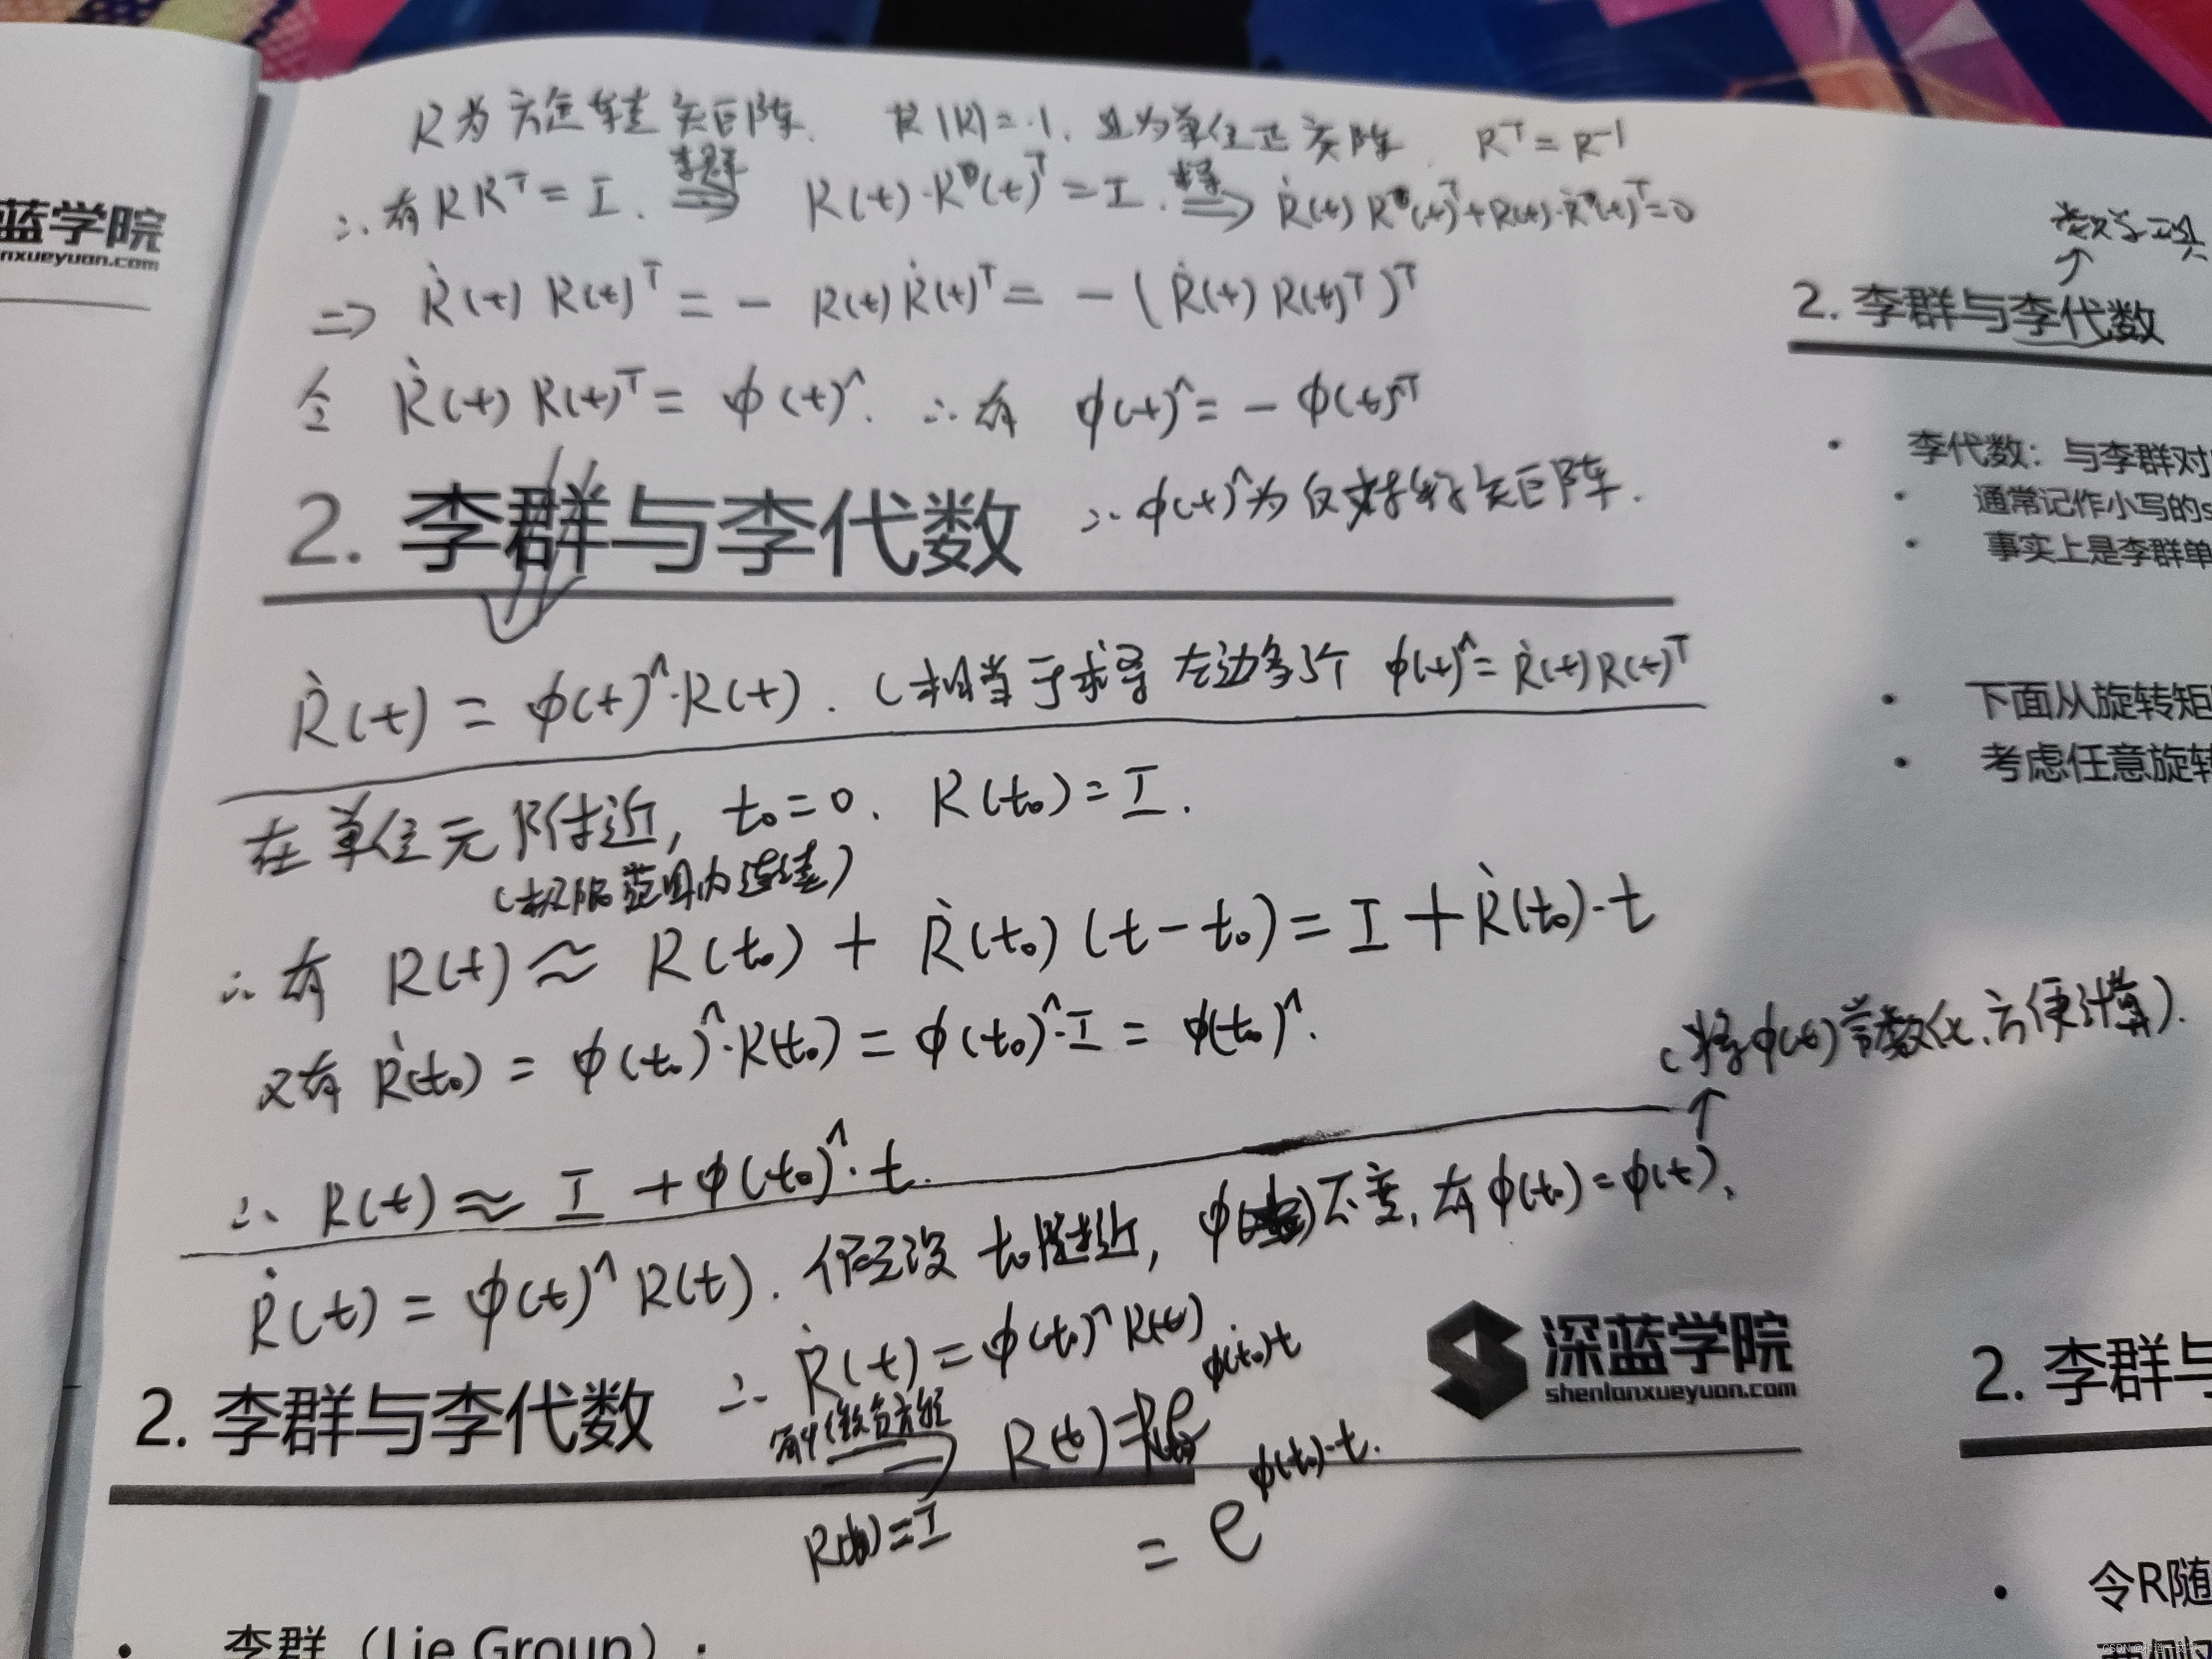 R为旋转矩阵. 且 |R|=1. 且为单位正交阵. R^T = R^-1
∴ 有 R R^T = I. 李群⇒ R(t)·R(t)^T = I. 求导⇒ Ṙ(t) R(t)^T + R(t)·Ṙ(t)^T = 0
⇒ Ṙ(t) R(t)^T = - R(t) Ṙ(t)^T = - (Ṙ(t) R(t)^T)^T
令 Ṙ(t) R(t)^T = φ(t)^. ∴ 有 φ(t)^ = - φ(t)^T
∴ φ(t)^为反对称矩阵.
2. 李群与李代数
Ṙ(t) = φ(t)^·R(t). (相当于求导 左边多1个 φ(t)^ = Ṙ(t) R(t)^T
在单位元附近, t₀=0. R(t₀)=I.
(极限范围内连续)
∴ 有 R(t) ≈ R(t₀) + Ṙ(t₀) (t-t₀) = I + Ṙ(t₀)·t
又有 Ṙ(t₀) = φ(t₀)^·R(t₀) = φ(t₀)^·I = φ(t₀)^.
(将φ(t)常数化, 方便计算).
↑
∴ R(t) ≈ I + φ(t₀)^·t.
Ṙ(t) = φ(t)^ R(t). 假设 t₀附近, φ( )不变, 有 φ(t₀)=φ(t),
∴ Ṙ(t) = φ(t₀)^ R(t)
解微分方程⇒ R(t) = e^φ(t₀)t
R(t₀)=I
= e^φ(t₀)·t.
2. 李群与李代数
深蓝学院
shenlanxueyuan.com
• 李群（Lie Group）:
蓝学院
nxueyuan.com
数学工具
↑
2. 李群与李代数
• 李代数：与李群对
• 通常记作小写的s
• 事实上是李群单
• 下面从旋转矩
• 考虑任意旋转
2. 李群与
• 令R随